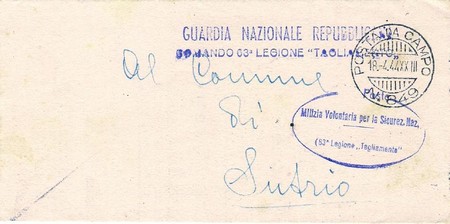 GUARDIA NAZIONALE REPUBBLIC
COMANDO 63ª LEGIONE "TAGLIA
POSTA DA CAMPO
18.4.44 XXII
Nº 849
Al Comune
di
Sutrio
Milizia Volontaria per la Sicurez. Naz.
(63ª Legione „Tagliamento"